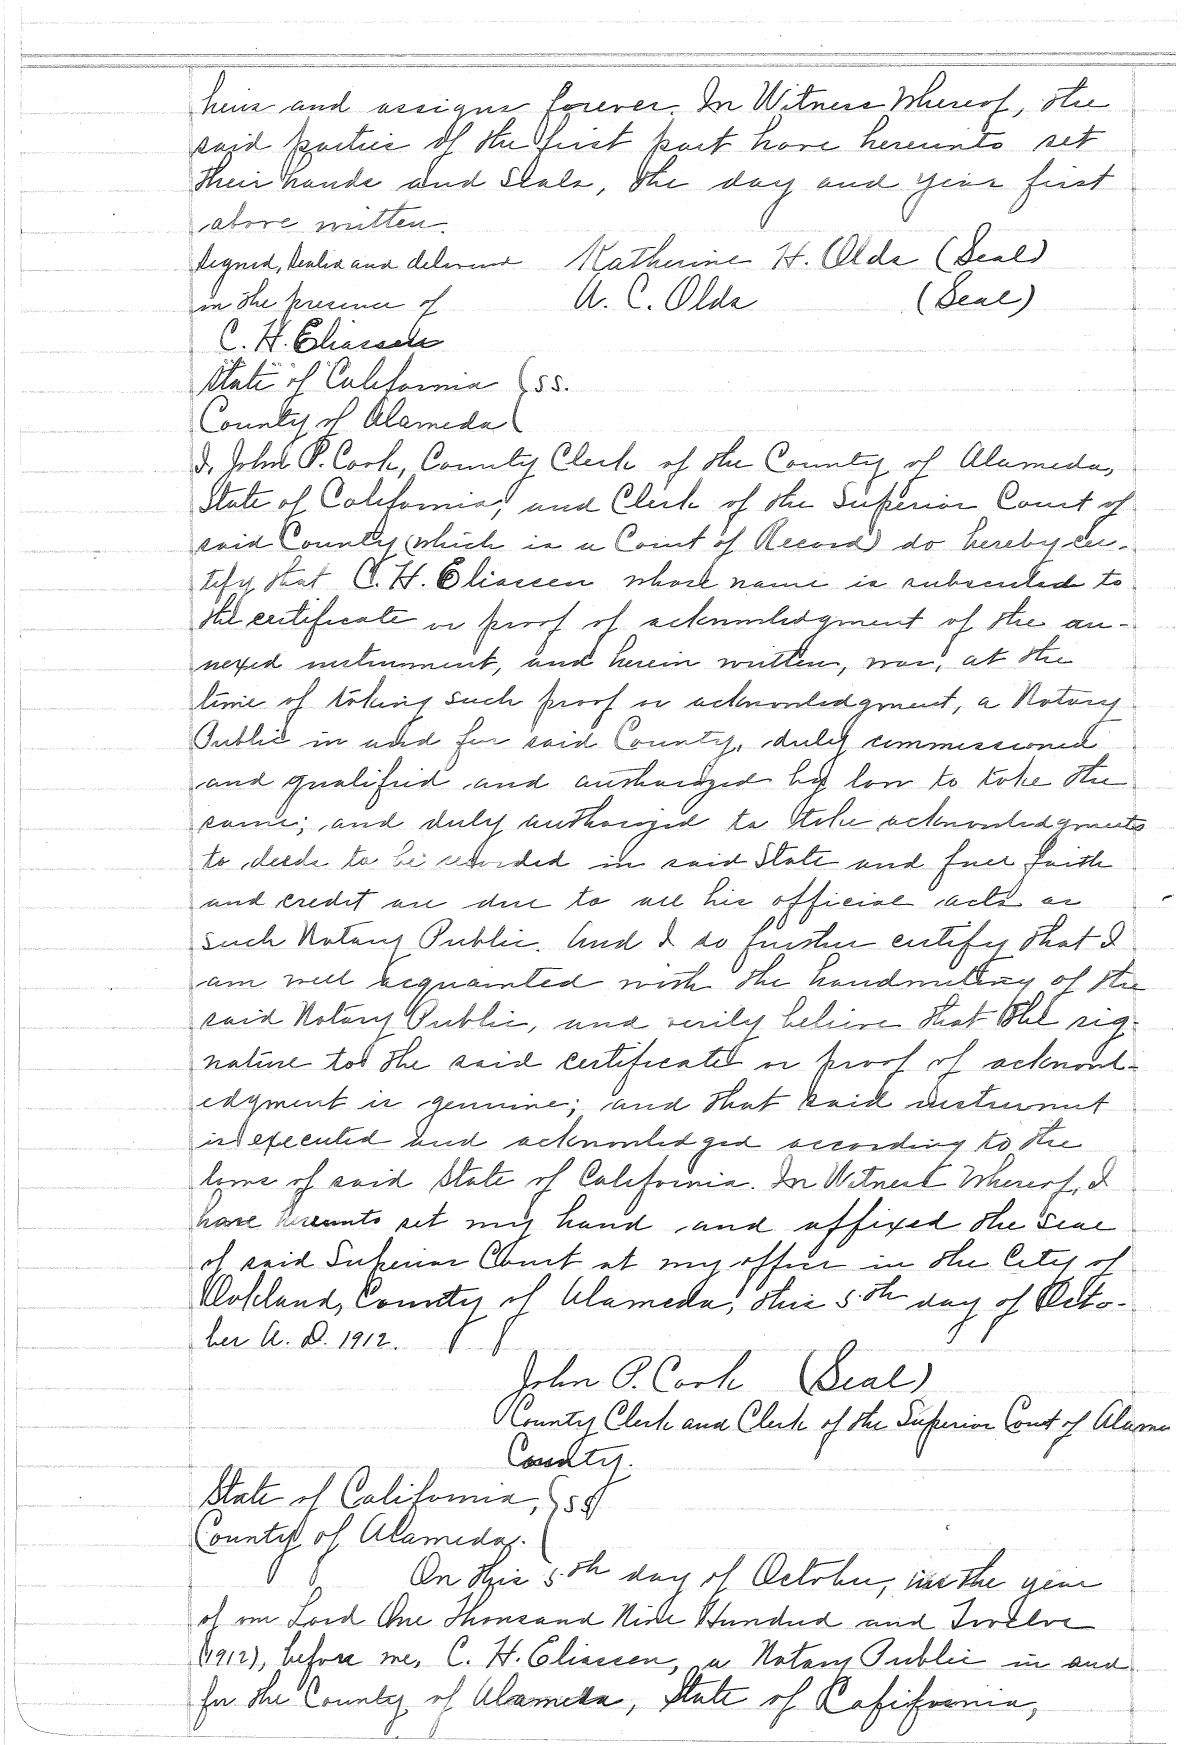 heirs and assigns forever. In Witness Whereof, the
said parties of the first part have hereunto set
their hands and seals, the day and year first
above written.
Signed, Sealed and delivered Katherine H. Olds (Seal)
in the presence of A. C. Olds (Seal)
C. H. Eliassen
State of California ss.
County of Alameda
I, John P. Cook, County Clerk of the County of Alameda,
State of California, and Clerk of the Superior Court of
said County (which is a Court of Record) do hereby cer-
tify that C. H. Eliassen whose name is subscribed to
the certificate or proof of acknowledgment of the an-
nexed instrument, and herein written, was, at the
time of taking such proof or acknowledgment, a Notary
Public in and for said County, duly commissioned
and qualified and authorized by law to take the
same; and duly authorized to take acknowledgments
to deeds to be recorded in said State and full faith
and credit are due to all his official acts as
such Notary Public. And I do further certify that I
am well acquainted with the handwriting of the
said Notary Public, and verily believe that the sig-
nature to the said certificate or proof of acknowl-
edgment is genuine; and that said instrument
is executed and acknowledged according to the
laws of said State of California. In Witness Whereof, I
have hereunto set my hand and affixed the seal
of said Superior Court at my office in the City of
Oakland, County of Alameda, this 5th day of Octo-
ber A. D. 1912.
John P. Cook (Seal)
County Clerk and Clerk of the Superior Court of Alame
County.
State of California, ss
County of Alameda.
On this 5th day of October, in the year
of our Lord One Thousand Nine Hundred and Twelve
(1912), before me, C. H. Eliassen, a Notary Public in and
for the County of Alameda, State of California,